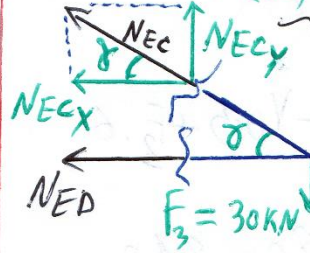 γ NEC NECY
NECX
γ
NED
F3 = 30KN